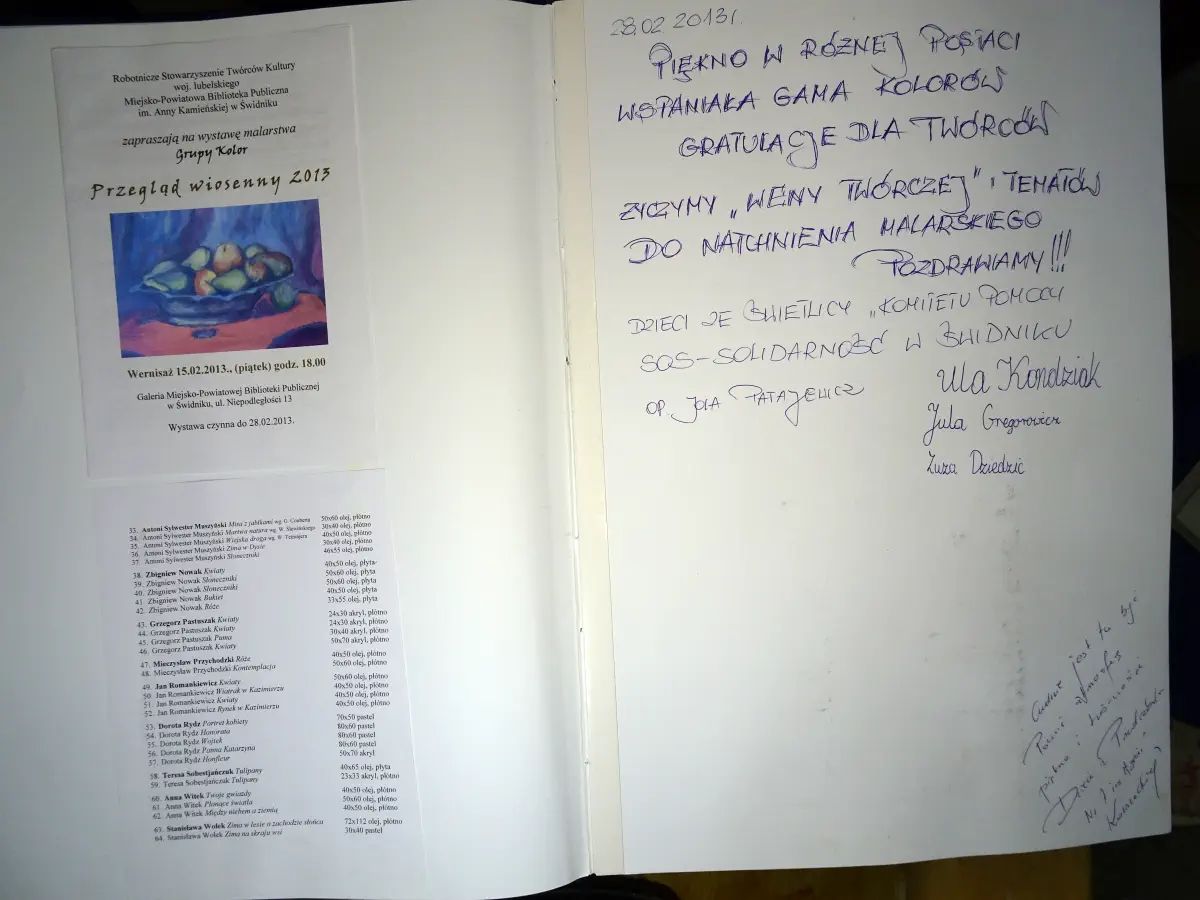 Robotnicze Stowarzyszenie Twórców Kultury
woj. lubelskiego
Miejsko-Powiatowa Biblioteka Publiczna
im. Anny Kamieńskiej w Świdniku
zapraszają na wystawę malarstwa
Grupy Kolor
Przegląd wiosenny 2013
Wernisaż 15.02.2013., (piątek) godz. 18.00
Galeria Miejsko-Powiatowej Biblioteki Publicznej
w Świdniku, ul. Niepodległości 13
Wystawa czynna do 28.02.2013.
33. Antoni Sylwester Muszyński Misa z jabłkami wg. G. 50x60 olej, płótno
34. Antoni Sylwester Muszyński Martwa natura wg. W. Ślewińskiego 30x40 olej, płótno
35. Antoni Sylwester Muszyński Wiejska droga wg. W. Tetmajera 40x50 olej, płótno
36. Antoni Sylwester Muszyński Zima w Dysie 30x40 olej, płótno
37. Antoni Sylwester Muszyński Słoneczniki 46x55 olej, płótno
38. Zbigniew Nowak Kwiaty 40x50 olej, płyta
39. Zbigniew Nowak Słoneczniki 50x60 olej, płyta
40. Zbigniew Nowak Słoneczniki 50x60 olej, płyta
41. Zbigniew Nowak Bukiet 40x50 olej, płyta
42. Zbigniew Nowak Róże 33x55 olej, płyta
43. Grzegorz Pastuszak Kwiaty 24x30 akryl, płótno
44. Grzegorz Pastuszak Kwiaty 24x30 akryl, płótno
45. Grzegorz Pastuszak Puma 30x40 akryl, płótno
46. Grzegorz Pastuszak Kwiaty 50x70 akryl, płótno
47. Mieczysław Przychodzki Róże 40x50 olej, płótno
48. Mieczysław Przychodzki Kontemplacja 50x60 olej, płótno
49. Jan Romankiewicz Kwiaty 50x60 olej, płótno
50. Jan Romankiewicz Wiatrak w Kazimierzu 40x50 olej, płótno
51. Jan Romankiewicz Kwiaty 40x50 olej, płótno
52. Jan Romankiewicz Rynek w Kazimierzu 40x50 olej, płótno
53. Dorota Rydz Portret kobiety 70x50 pastel
54. Dorota Rydz Honorata 80x60 pastel
55. Dorota Rydz Wojtek 80x60 pastel
56. Dorota Rydz Panna Katarzyna 80x60 pastel
57. Dorota Rydz Honfleur 50x70 akryl
58. Teresa Sobestjańczuk Tulipany 40x65 olej, płyta
59. Teresa Sobestjańczuk Tulipany 23x33 akryl, płótno
60. Anna Witek Twoje gwiazdy 40x50 olej, płótno
61. Anna Witek Płonące światła 50x60 olej, płótno
62. Anna Witek Między niebem a ziemią 40x50 olej, płótno
63. Stanisława Wołek Zima w lesie o zachodzie słońca 72x112 olej, płótno
64. Stanisława Wołek Zima na skraju wsi 30x40 pastel
28.02.2013r.
PIĘKNO W RÓŻNEJ POSTACI
WSPANIAŁA GAMA KOLORÓW
GRATULACJE DLA TWÓRCÓW
ŻYCZYMY „WENY TWÓRCZEJ" i TEMATÓW
DO NATCHNIENIA MALARSKIEGO
POZDRAWIAMY!!!
DZIECI ZE ŚWIETLICY „KOMITETU POMOCY
SOS-SOLIDARNOŚĆ W ŚWIDNIKU
OP. JOLA
Ula Kondziak
Jula Gregorowicz
Zuza Dziedzic
Cudnie jest tu być
piękna i
Dzieci z Przedszkola
Nr 1 im